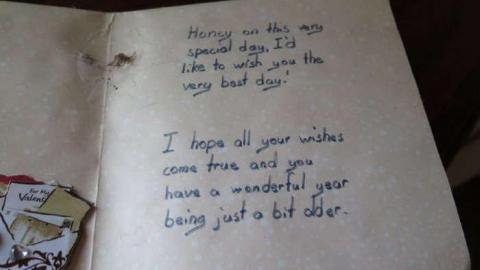 Honey on this very
special day, I'd
like to wish you the
very best day!
I hope all your wishes
come true and you
have a wonderful year
being just a bit older.
For My
Valen